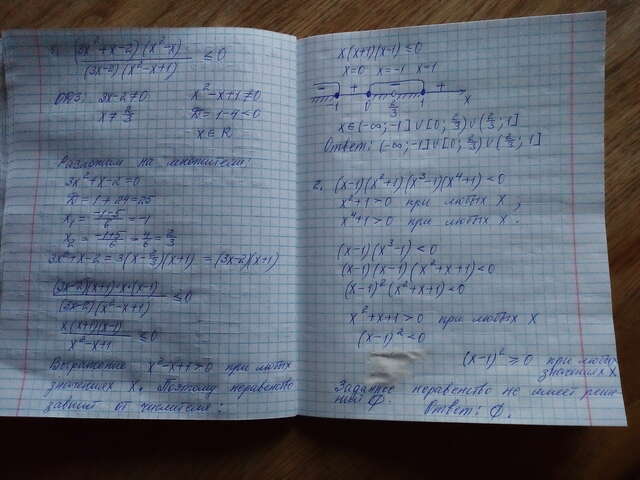 1) (3x²+x-2)(x²-x) / (3x-2)(x²-x+1) ≤ 0
ОДЗ: 3x-2≠0 x²-x+1≠0
x≠2/3 D=1-4<0
x∈R
Разложим на множители:
3x²+x-2=0
D=1+24=25
x₁=(-1-5)/6=-1
x₂=(-1+5)/6=4/6=2/3
3x²+x-2=3(x-2/3)(x+1)=(3x-2)(x+1)
(3x-2)(x+1)·x·(x-1) / (3x-2)(x²-x+1) ≤0
x(x+1)(x-1) / x²-x+1 ≤0
Выражение x²-x+1>0 при любых
значениях x. Поэтому неравенство
зависит от числителя:
x(x+1)(x-1)≤0
x=0 x=-1 x=1
- + - +
-1 0 2/3 1 x
x∈(-∞;-1]∪[0;2/3)∪(2/3;1]
Ответ: (-∞;-1]∪[0;2/3)∪(2/3;1]
2. (x-1)(x²+1)(x³-1)(x⁴+1)<0
x²+1>0 при любых x;
x⁴+1>0 при любых x.
(x-1)(x³-1)<0
(x-1)(x-1)(x²+x+1)<0
(x-1)²(x²+x+1)<0
x²+x+1>0 при любых x
(x-1)²<0
(x-1)²≥0 при любых
значениях x
Заданное неравенство не имеет реше-
ний ∅.
Ответ: ∅.